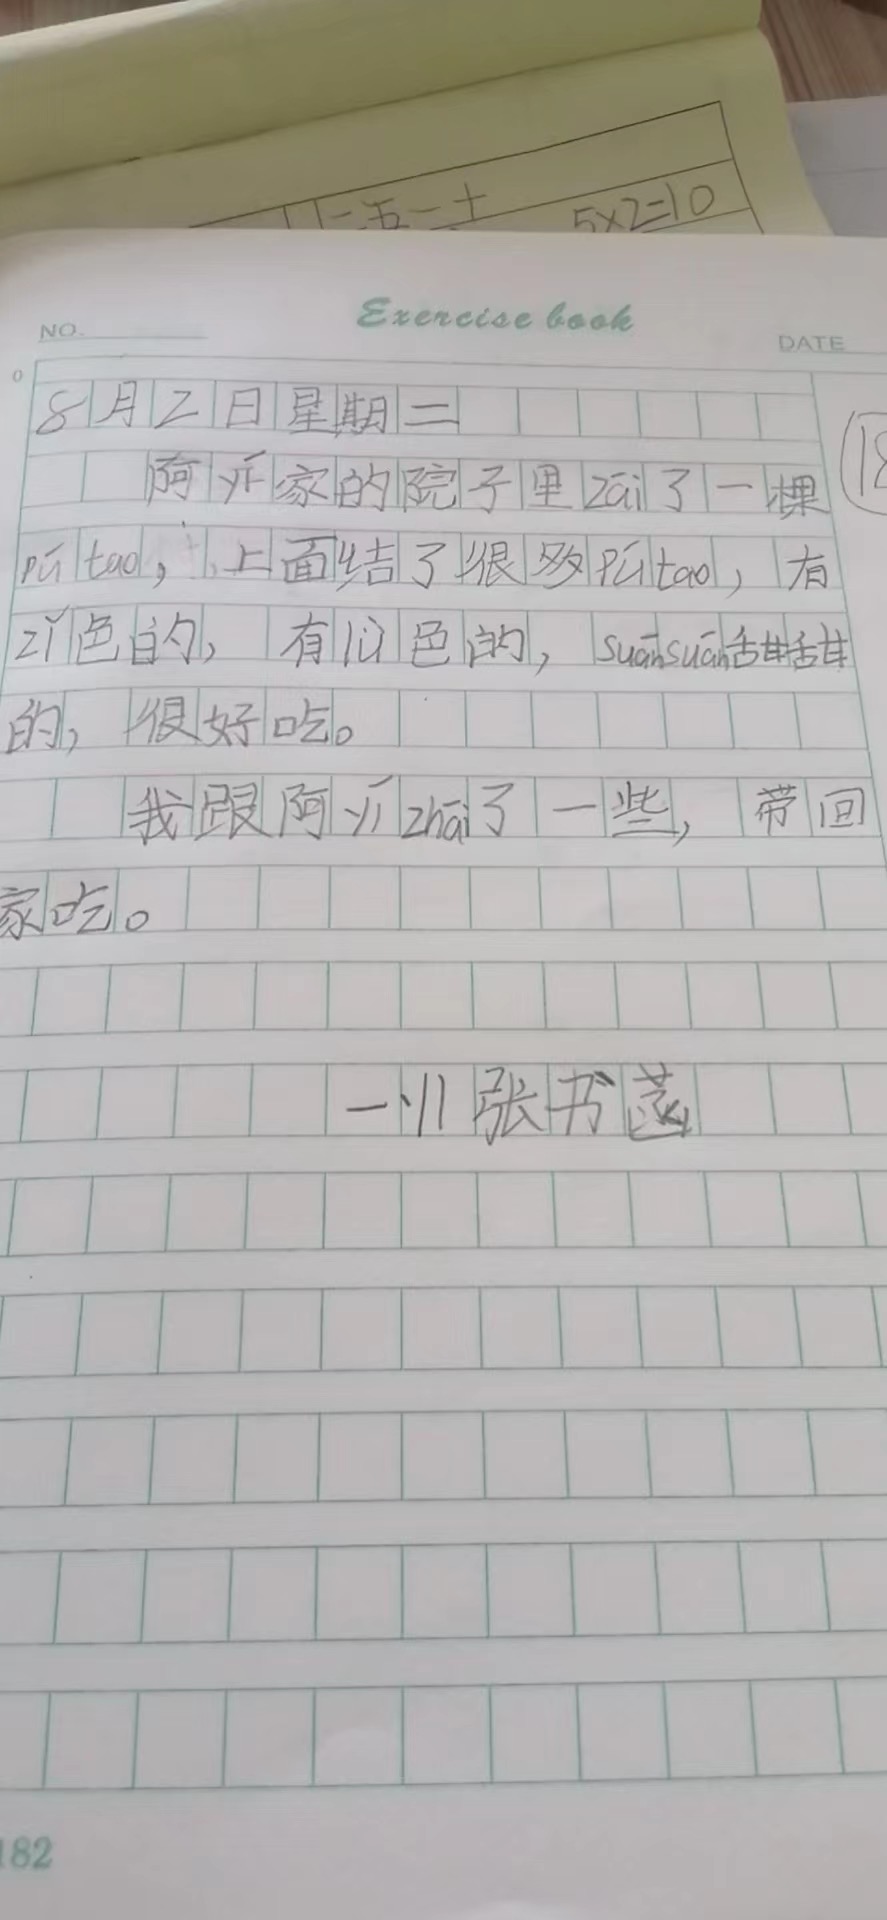 二五一十
5×2=10
Exercise book
NO.
DATE
8月2日星期二
18
阿yí家的院子里zāi了一棵
pútao，上面结了很多pútao，有
zǐ色的，有lǜ色的，suānsuān甜甜
的，很好吃。
我跟阿yízhāi了一些，带回
家吃。
一川张书菡
182